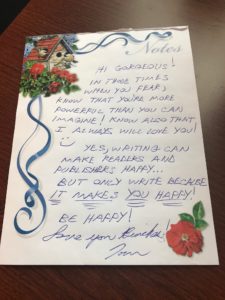 Notes
HI GORGEOUS!
IN THOSE TIMES
WHEN YOU FEAR,
KNOW THAT YOU'RE MORE
POWERFUL THAN YOU CAN
IMAGINE! KNOW ALSO THAT
I ALWAYS WILL LOVE YOU!
YES, WRITING CAN
MAKE READERS AND
PUBLISHERS HAPPY...
BUT ONLY WRITE BECAUSE
IT MAKES YOU HAPPY!
BE HAPPY!
Love you